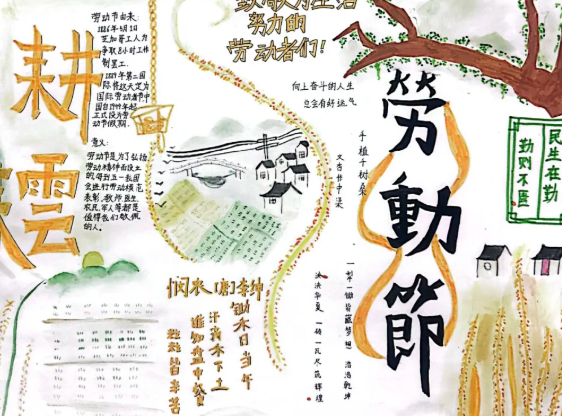 致敬为生活
努力的
劳动者们！
耕
雲
劳动节由来：
1886年5月1日
芝加哥工人为
争取8小时工作
制罢工.
1889年第二国
国际劳动节
向上奋斗的人生
总会有好运气
勞動節
手植千树桑
又杏井中渠
民生在勤
勤则不匮
意义：
劳动节是为了弘扬
劳动精神而设立
表彰,教师,医生
农民,军人等都是
值得我们敬佩
的人。
悯农【唐】李绅
锄禾日当午
汗滴禾下土
谁知盘中餐
粒粒皆辛苦
一犁一锄皆藏梦想 浩浩乾坤
泱泱华夏 一砖一瓦尽筑辉煌